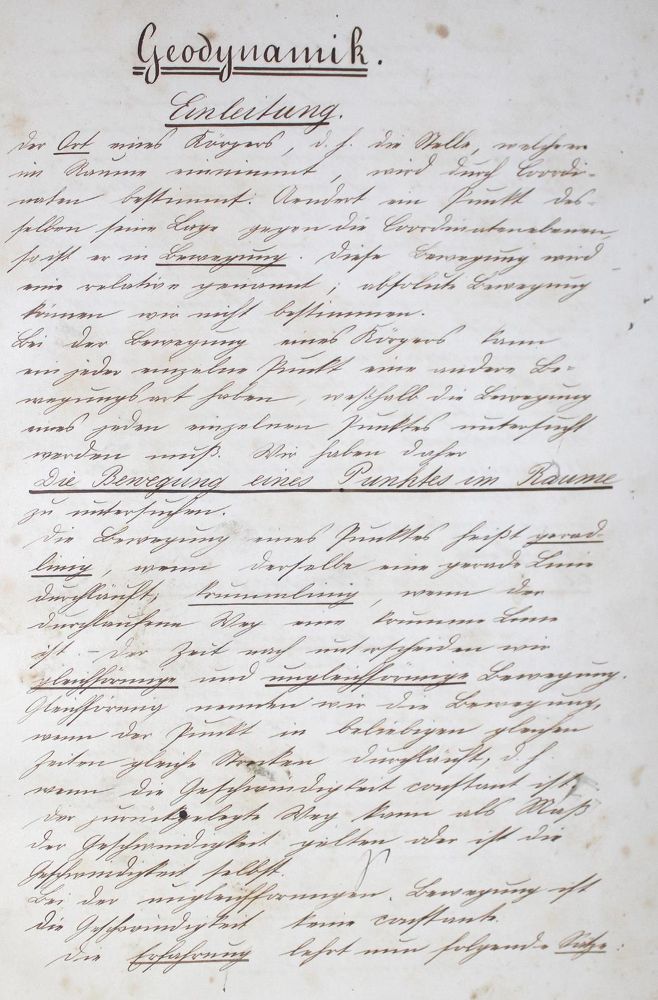 Geodynamik.
Einleitung.
Der Ort eines Körpers, d. h. die Stelle, welche er
im Raume einnimmt, wird durch Coordi-
naten bestimmt. Aendert ein Punkt des-
selben seine Lage gegen die Coordinatenebenen,
so ist er in Bewegung. Diese Bewegung wird
eine relative genannt; absolute Bewegung
können wir nicht bestimmen.
Bei der Bewegung eines Körpers kann
ein jeder einzelne Punkt eine andere Be-
wegungsart haben, weßhalb die Bewegung
eines jeden einzelnen Punktes untersucht
werden muß. Wir haben daher
Die Bewegung eines Punktes im Raume
zu untersuchen.
Die Bewegung eines Punktes heißt gerad-
linig, wenn derselbe eine gerade Linie
durchläuft; krummlinig, wenn der
durchlaufene Weg eine krumme Linie
ist. – Der Zeit nach unterscheiden wir
gleichförmige und ungleichförmige Bewegung.
Gleichförmig nennen wir die Bewegung,
wenn der Punkt in beliebigen gleichen
Zeiten gleiche Strecken durchläuft, d. h.
wenn die Geschwindigkeit constant ist,
der zurückgelegte Weg kann als Maß
der Geschwindigkeit gelten oder ist die
Geschwindigkeit selbst.
Bei der ungleichförmigen Bewegung ist
die Geschwindigkeit keine constante.
Die Erfahrung lehrt nun folgende Sätze: